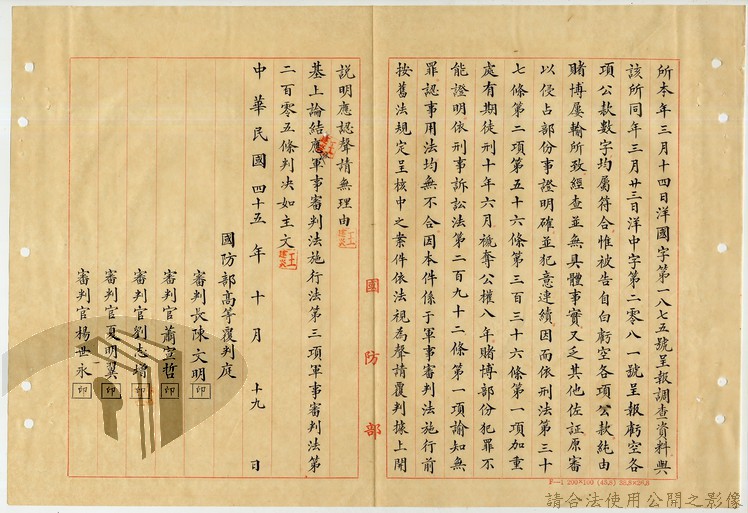 所本年三月十四日洋國字第一八七五號呈報調查資料與
該所同年三月廿三日洋中字第二零八一號呈報虧空各
項公款數字均屬符合惟被告自白虧空各項公款純由
賭博屢輸所致經查並無具體事實又乏其他佐証原審
以侵占部份事證明確並犯意連續因而依刑法第三十
七條第二項第五十六條第三百三十六條第一項加重
處有期徒刑十年六月褫奪公權八年賭博部份犯罪不
能證明依刑事訴訟法第二百九十二條第一項諭知無
罪認事用法均無不合因本件係于軍事審判法施行前
按舊法規定呈核中之案件依法視為聲請覆判據上開
國防部
說明應認聲請無理由
基上論結應軍事審判法施行法第三項軍事審判法第
二百零五條判決如主文
中華民國四十五年十月十九日
國防部高等覆判庭
審判長陳文明印
審判官蕭雲哲印
審判官劉志增印
審判官夏明翼印
審判官楊世永印
F—1 200×100 (45,9) 38,8×26,8
請合法使用公開之影像